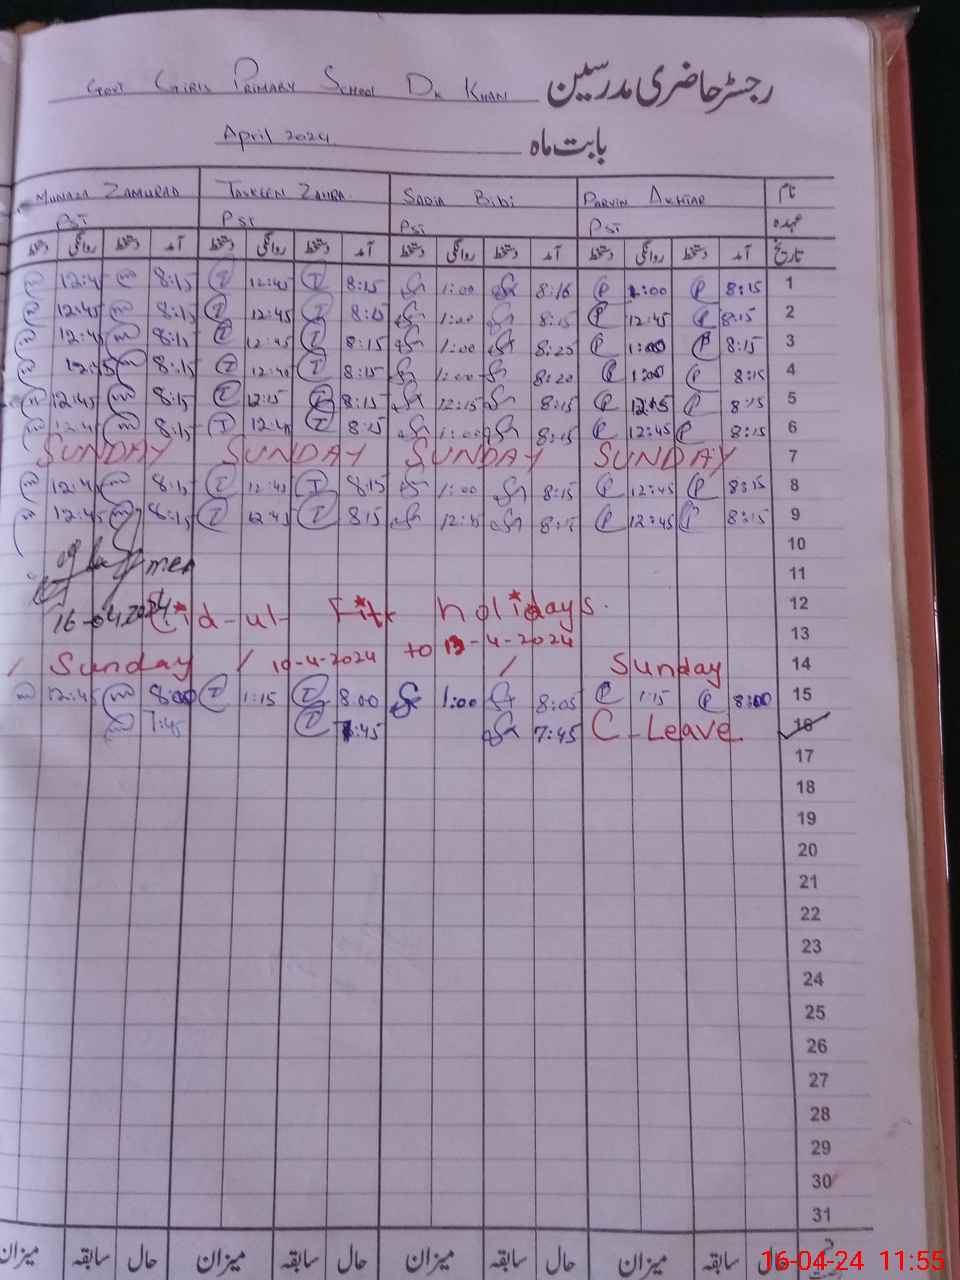 Govt Girls Primary School Dk Khan رجسٹر حاضری مدرسین
April 2024 بابت ماہ
Munaza Zamurad Taskeen Zahra Sadia Bibi Parvin Akhtar نام
PST PST PST PST عہدہ
دستخط روانگی دستخط آمد دستخط روانگی دستخط آمد دستخط روانگی دستخط آمد دستخط روانگی دستخط آمد تاریخ
m 12:45 m 8:15 T 12:45 T 8:15 1:00 8:16 P 1:00 P 8:15 1
m 12:45 m 8:15 T 12:45 T 8:15 1:00 8:15 P 12:45 P 8:15 2
m 12:45 m 8:15 T 12:45 T 8:15 1:00 8:25 P 1:00 P 8:15 3
m 12:45 m 8:15 T 12:40 T 8:15 1:00 8:20 P 1:00 P 8:15 4
m 12:45 m 8:15 T 12:15 T 8:15 12:15 8:15 P 12:45 P 8:15 5
m 12:4 m 8:15 T 12:4 T 8:15 1:00 8:15 P 12:45 P 8:15 6
SUNDAY SUNDAY SUNDAY SUNDAY 7
m 12:4 m 8:15 T 12:45 T 8:15 1:00 8:15 P 12:45 P 8:15 8
m 12:45 m 8:15 T 12:45 T 8:15 12:45 8:15 P 12:45 P 8:15 9
10
11
16-04-2024 Eid-ul-Fitr holidays. 12
10-4-2024 to 13-4-2024 13
/ Sunday / / Sunday 14
m 12:45 m 8:00 T 1:15 T 8:00 1:00 8:05 P 1:15 P 8:00 15
m 7:45 T 7:45 7:45 C-Leave 16
17
18
19
20
21
22
23
24
25
26
27
28
29
30
31
میزان سابقہ حال میزان سابقہ حال میزان سابقہ حال میزان سابقہ حال
16-04-24 11:55